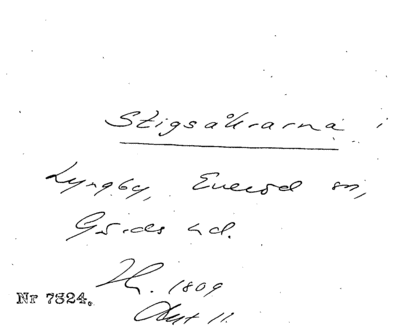 Stigsåkrarna i
Lyngby, Everöd sn,
Gärds hd.
Lh. 1809
Akt 11.
Nr 7324.